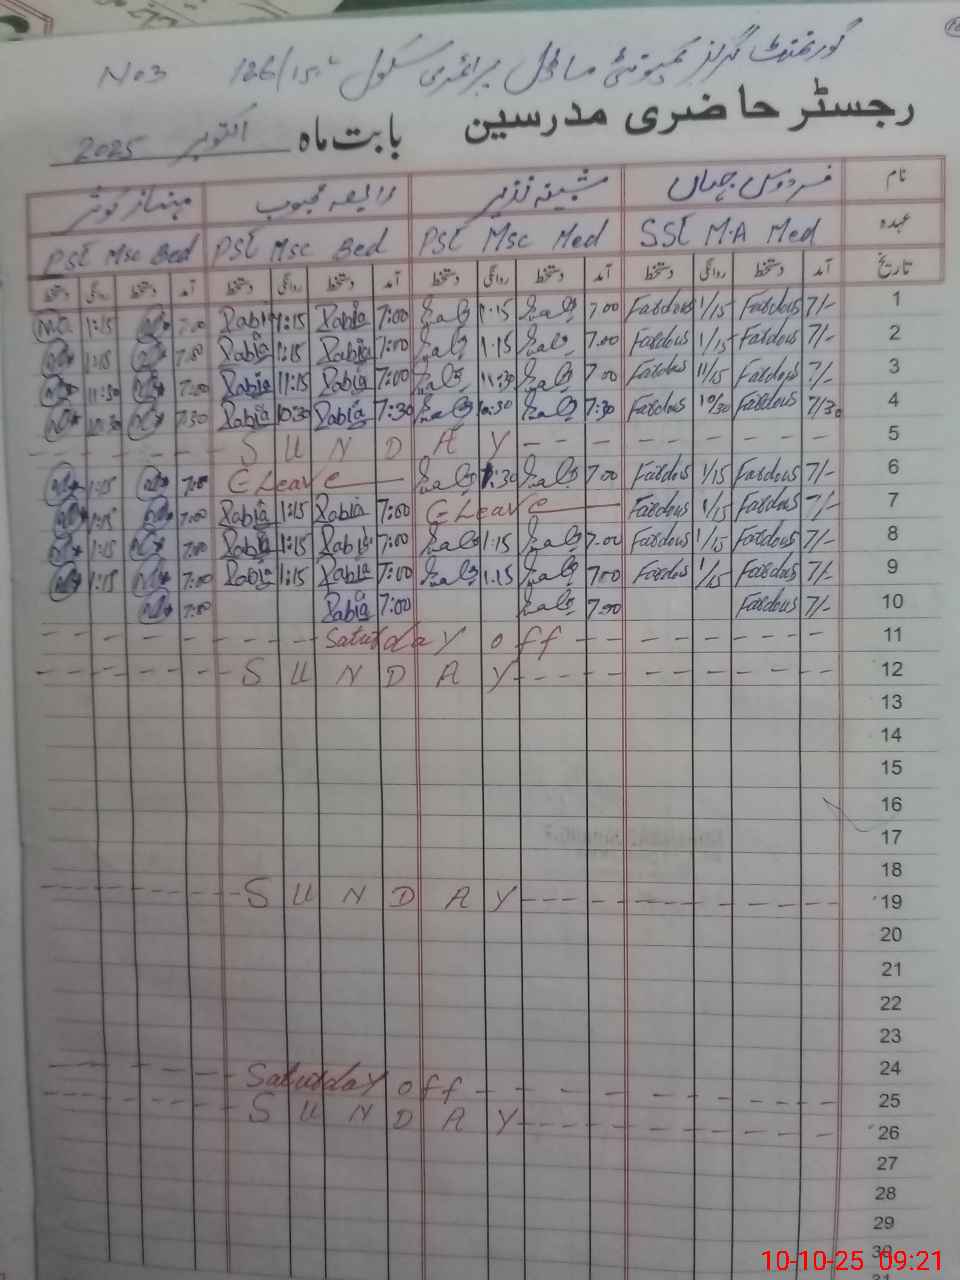 گورنمنٹ گرلز کمیونٹی ماڈل پرائمری سکول 126/15.L No 3
رجسٹر حاضری مدرسین بابت ماہ اکتوبر 2025
نام فردوس جہاں شبینہ نذیر رابعہ محبوب مہناز کوثر
عہدہ SST M.A Med PST Msc Med PST Msc Bed PST Msc Bed
تاریخ آمد دستخط روانگی دستخط آمد دستخط روانگی دستخط آمد دستخط روانگی دستخط آمد دستخط روانگی دستخط
1 7/- Fardous 1/15 Fardous 7.00 1.15 7:00 Rabia 1:15 Rabia 7.00 1:15
2 7/- Fardous 1/15 Fardous 7.00 1.15 7:00 Rabia 1:15 Rabia 7.00 1:15
3 7/- Fardous 11/15 Fardous 7.00 11:30 7:00 Rabia 11:15 Rabia 7:00 11:30
4 7/30 Fardous 10/30 Fardous 7:30 10:30 7:30 Rabia 10:30 Rabia 7:30 10:30
5 SUNDAY
6 7/- Fardous 1/15 Fardous 7.00 C Leave 7:00 1:15
7 7/- Fardous 1/15 Fardous C Leave 7:00 Rabia 1:15 Rabia 7:00 1:15
8 7/- Fardous 1/15 Fardous 7.00 1.15 7:00 Rabia 1:15 Rabia 7:00 1:15
9 7/- Fardous 1/15 Fardous 7.00 1.15 7:00 Rabia 1:15 Rabia 7:00 1:15
10 7/- Fardous 7.00 7:00 Rabia 7:00
11 Saturday off
12 SUNDAY
13
14
15
16
17
18
19 SUNDAY
20
21
22
23
24
25 Saturday off
26 SUNDAY
27
28
29
30
10-10-25 09:21